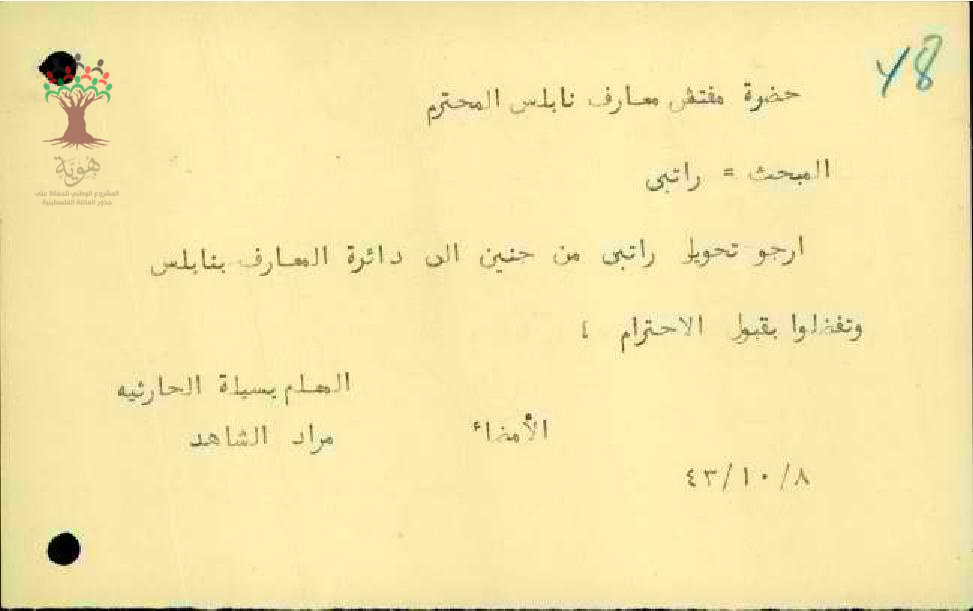 78
حضرة مفتش معارف نابلس المحترم
المبحث = راتبي
ارجو تحويل راتبي من جنين الى دائرة المعارف بنابلس
وتفضلوا بقبول الاحترام ؛
المعلم بسيلة الحارثيه
الأمضاء مراد الشاهد
٤٣/١٠/٨
هُوِيَّة
المشروع الوطني للحفاظ على
جذور العائلة الفلسطينية